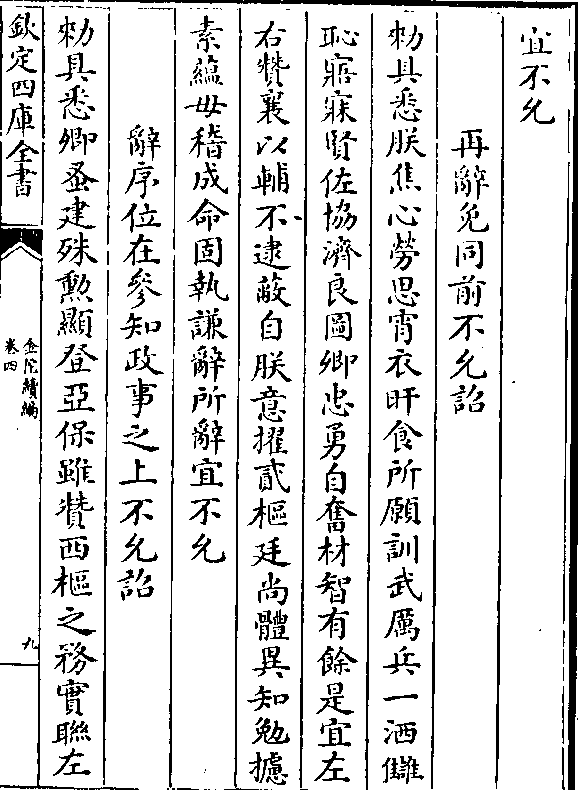 宜不允
再辭免同前不允詔
勑具悉朕焦心勞思宵衣旰食所願訓武厲兵一洒讎
恥寤寐賢佐協濟良圖卿忠勇自奮材智有餘是宜左
右贊襄以輔不逮蔽自朕意擢貳樞廷尚體異知勉攄
素蘊毋稽成命固執謙辭所辭宜不允
辭序位在參知政事之上不允詔
勑具悉卿蚤建殊勲顯登亞保雖贊西樞之務實聯左
欽定四庫全書
金陀續編
卷四
九